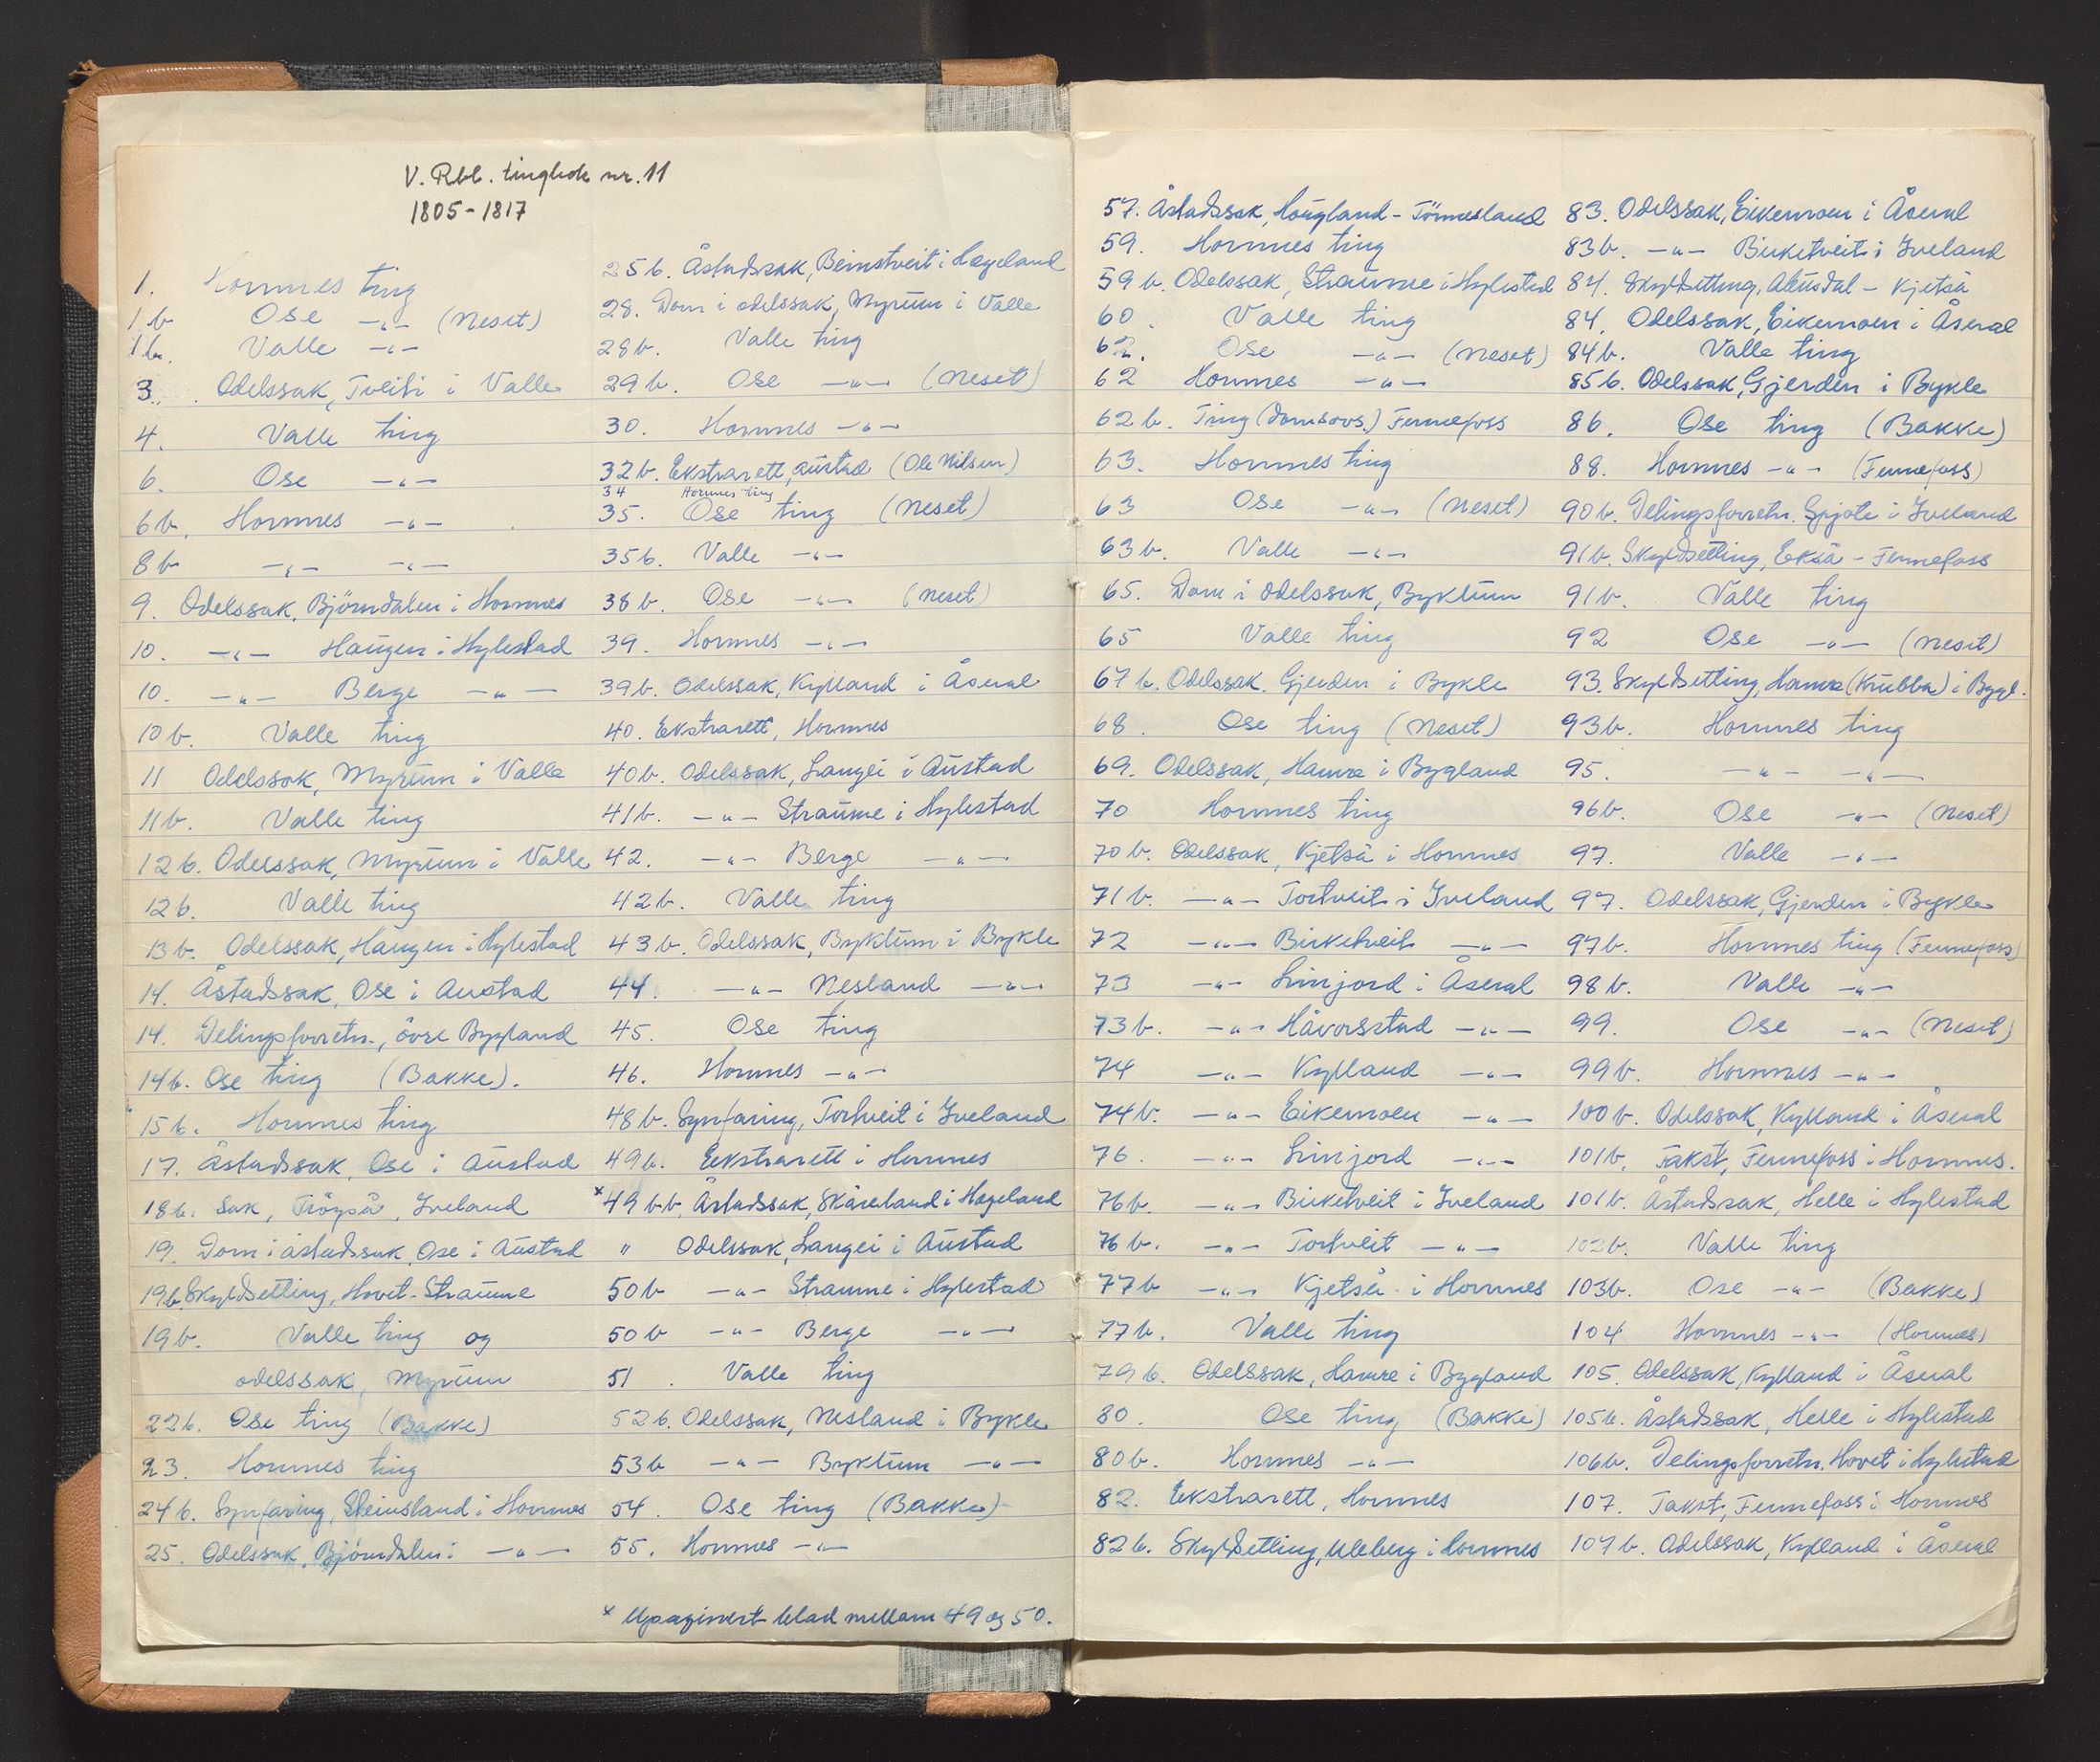 V. Rbl. tingbok nr. 11
1805-1817
1. Hornnes ting
1b Ose -"- (Neset)
1b. Valle -"-
3. Odelssak, Tveiti i Valle
4. Valle ting
6. Ose -"-
6b. Hornnes -"-
8b -"- -"-
9. Odelssak, Björndalen i Hornnes
10. -"- Haugen i Hylestad
10. -"- Berge -"-
10b. Valle ting
11 Odelssak, Myrum i Valle
11b. Valle ting
12b. Odelssak, Myrum i Valle
12b. Valle ting
13b. Odelssak, Haugen i Hylestad
14. Åstadssak, Ose i Austad
14. Delingsforretn., övre Bygland
14b. Ose ting (Bakke).
15b. Hornnes ting
17. Åstadssak, Ose i Austad
18b. Sak, Fröyså, Iveland
19. Dom i åstadssak, Ose i Austad
19b Skyldsetting, Hovet-Straume
19b. Valle ting og
odelssak, Myrum
22b. Ose ting (Bakke)
23. Hornnes ting
24b. Synfaring, Steinsland i Hornnes
25. Odelssak, Björndalen i -"-
25b. Åstadssak, Beinstveit i Hægeland
28. Dom i odelssak, Myrum i Valle
28b. Valle ting
29b. Ose -"- (Neset)
30. Hornnes -"-
32b. Ekstrarett, Austad (Ole Nilsen)
34 Hornnes ting
35. Ose ting (Neset)
35b. Valle -"-
38b. Ose -"- (Neset)
39. Hornnes -"-
39b. Odelssak, Kylland i Åseral
40. Ekstrarett, Hornnes
40b. Odelssak, Langei i Austad
41b. -"- Straume i Hylestad
42. -"- Berge -"-
42b. Valle ting
43b. Odelssak, Byktum i Bykle
44. -"- Nesland -"-
45. Ose ting
46. Hornnes -"-
48b. Synfaring, Tortveit i Iveland
49b. Ekstrarett i Hornnes
x 49bb. Åstadssak, Skåreland i Hægeland
" Odelssak, Langei i Austad
50b -"- Straume i Hylestad
50b -"- Berge -"-
51. Valle ting
52b. Odelssak, Nesland i Bykle
53b -"- Byktum -"-
54. Ose ting (Bakke)
55. Hornnes -"-
x Upaginert blad mellom 49 og 50.
57. Åstadssak, Hougland - Tönnesland
59. Hornnes ting
59b. Odelssak, Straume i Hylestad
60. Valle ting
62. Ose -"- (Neset)
62 Hornnes -"-
62b. Ting (domsavs.) Fennefoss
63. Hornnes ting
63 Ose -"- (Neset)
63b. Valle -"-
65. Dom i odelssak, Byktum
65 Valle ting
67b. Odelssak, Gjerden i Bykle
68. Ose ting (Neset)
69. Odelssak, Hamre i Bygland
70 Hornnes ting
70b. Odelssak, Kjetså i Hornnes
71b. -"- Tortveit i Iveland
72 -"- Birketveit -"-
73 -"- Linjord i Åseral
73b. -"- Håvorsstad -"-
74 -"- Kylland -"-
74b. -"- Eikemoen -"-
76. -"- Linjord -"-
76b. -"- Birketveit i Iveland
76b. -"- Tortveit -"-
77b -"- Kjetså i Hornnes
77b. Valle ting
79b. Odelssak, Hamre i Bygland
80. Ose ting (Bakke)
80b. Hornnes -"-
82. Ekstrarett, Hornnes
82b. Skyldsetting, Uleberg i Hornnes
83. Odelssak, Eikemoen i Åseral
83b. -"- Birketveit i Iveland
84. Skyldsetting, Abusdal - Kjetså
84. Odelssak, Eikemoen i Åseral
84b. Valle ting
85b. Odelssak, Gjerden i Bykle
86. Ose ting (Bakke)
88. Hornnes -"- (Fennefoss)
90b. Delingsforretn. i Iveland
91b. Skyldsetting, Ekså - Fennefoss
91b. Valle ting
92 Ose -"- (Neset)
93. Skyldsetting, Hamre (Krubba) i Bygl.
93b. Hornnes ting
95. -"- -"-
96b. Ose -"- (Neset)
97. Valle -"-
97. Odelssak, Gjerden i Bykle
97b. Hornnes ting (Fennefoss)
98b. Valle -"-
99. Ose -"- (Neset)
99b. Hornnes -"-
100b. Odelssak, Kylland i Åseral
101b. Takst, Fennefoss i Hornnes.
101b. Åstadssak, Helle i Hylestad
102b. Valle ting
103b. Ose -"- (Bakke)
104 Hornnes -"- (Hornnes)
105. Odelssak, Kylland i Åseral
105b. Åstadssak, Helle i Hylestad
106b. Delingsforretn. Hovet i Hylestad
107. Takst, Fennefoss i Hornnes
107b. Odelssak, Kylland i Åseral